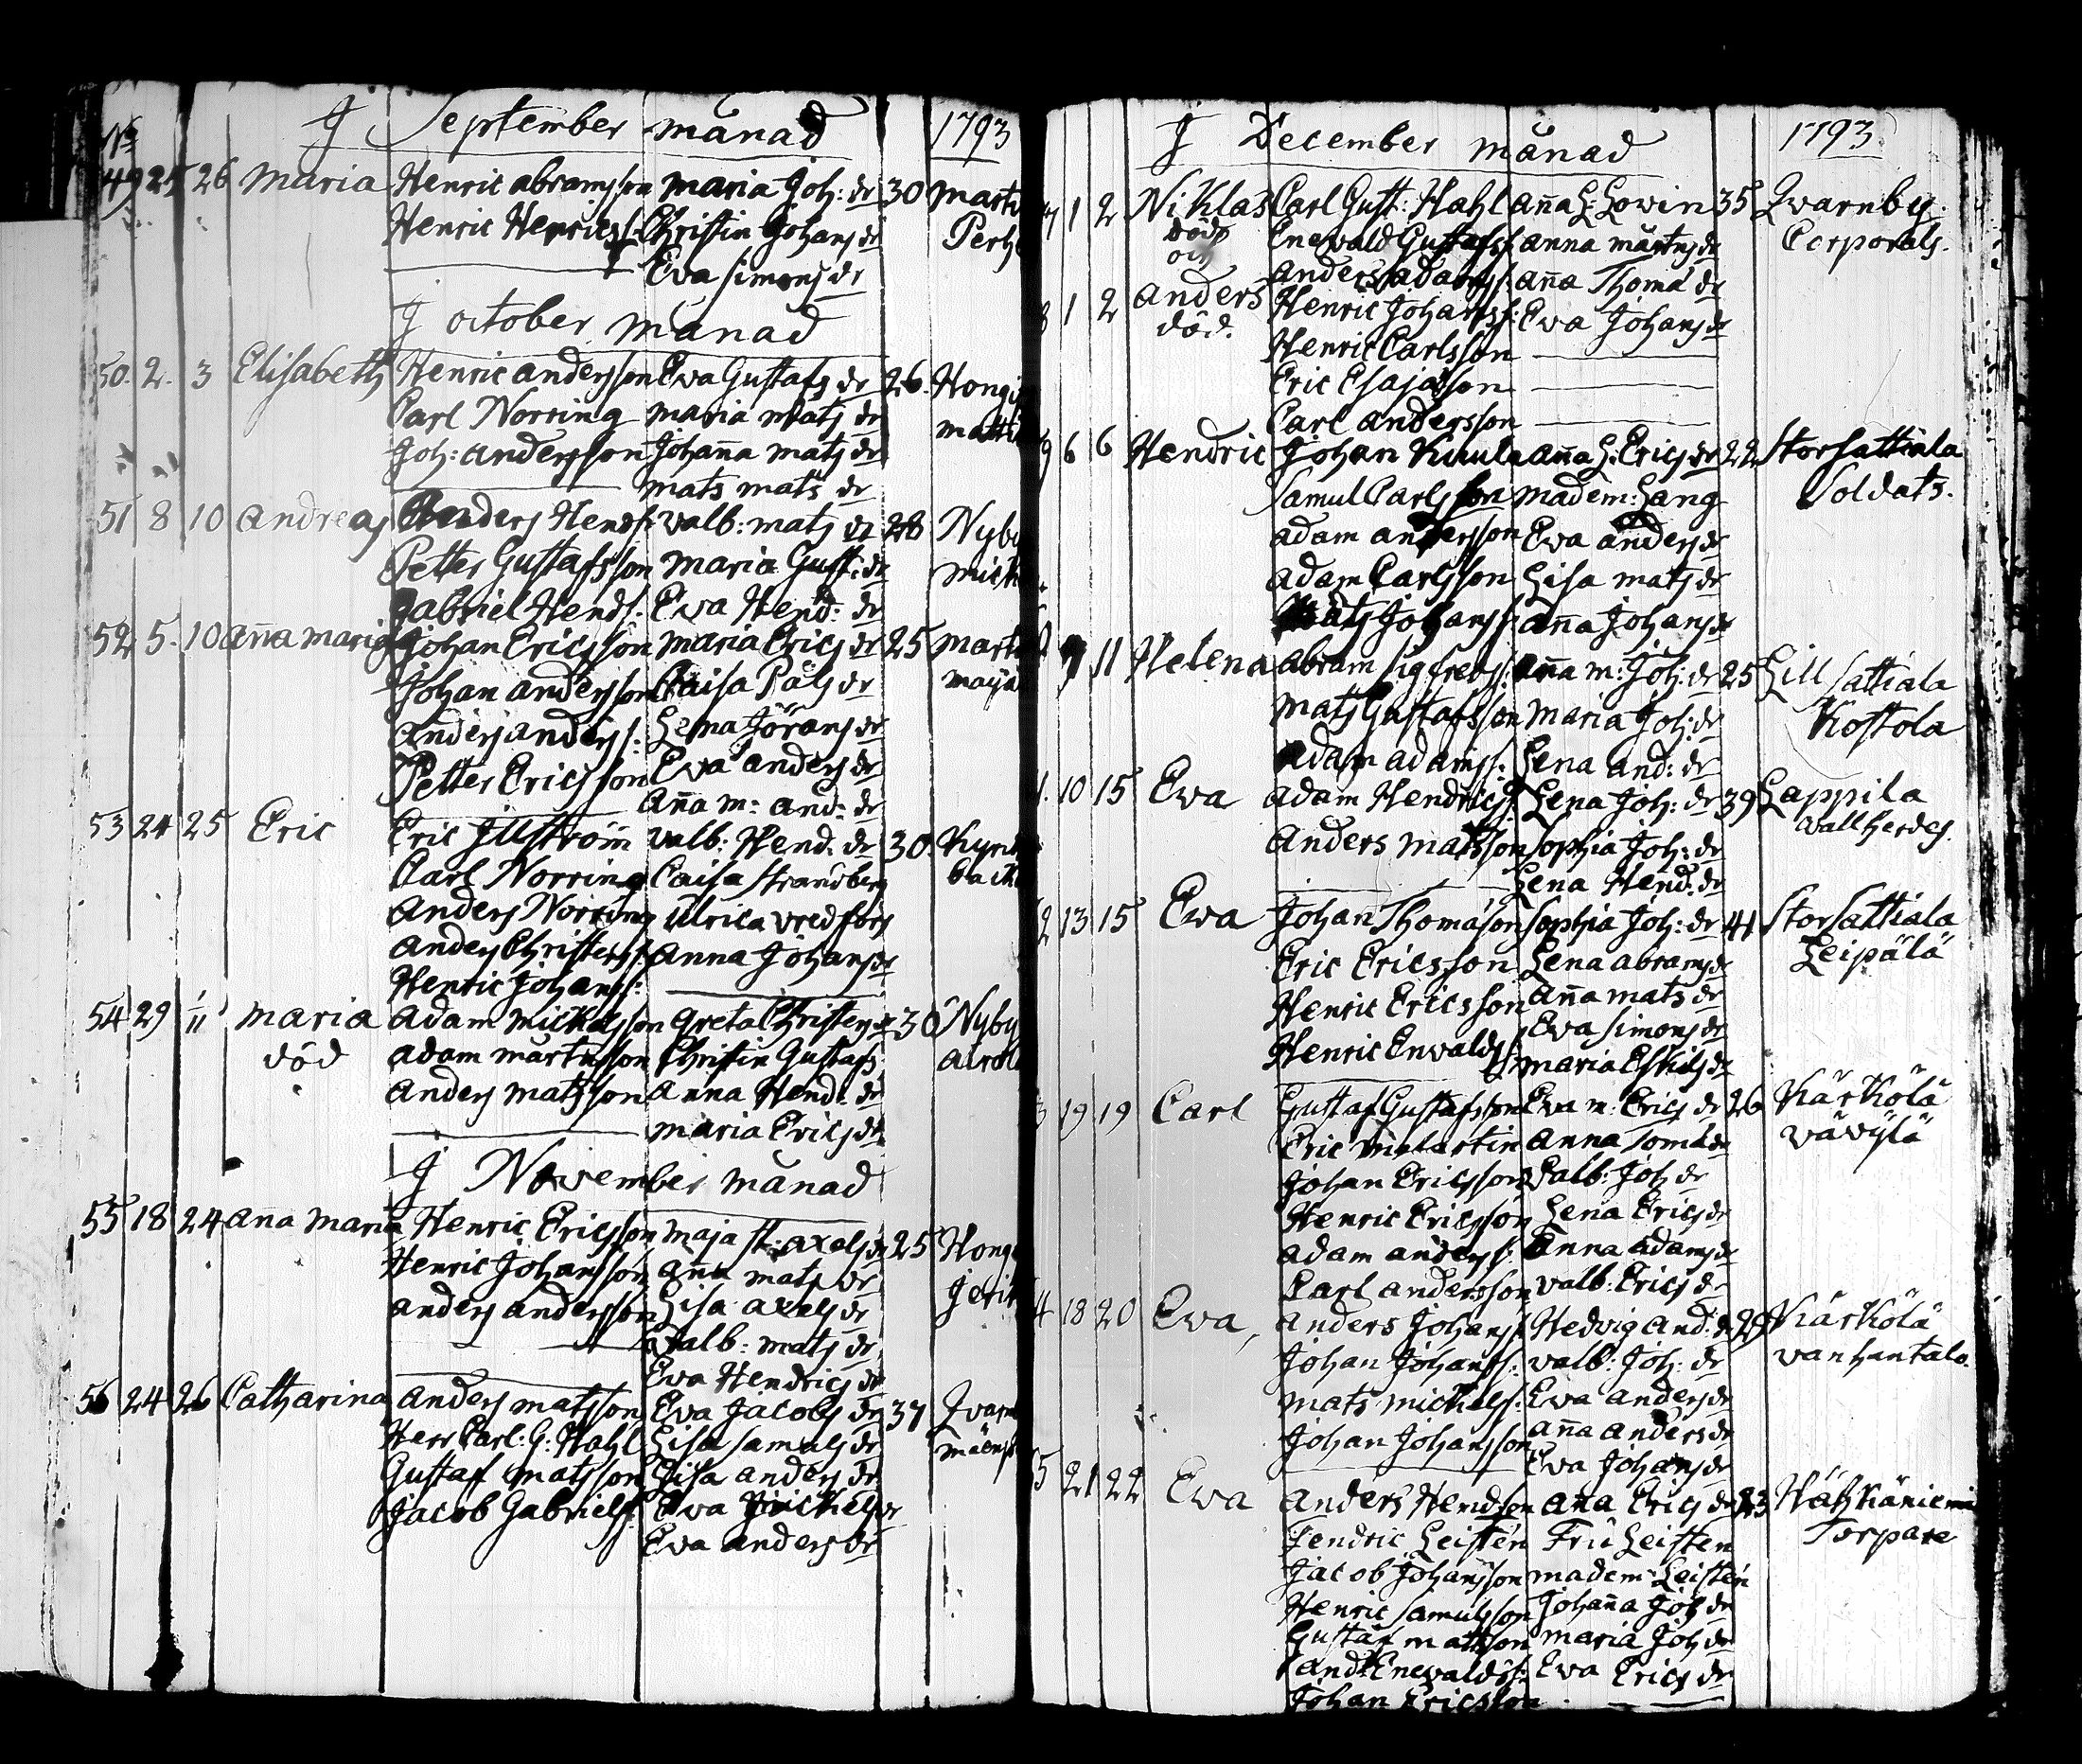 No
J September månad 1793
49 25 26 Maria Henric Abramsson Maria Joh: dr 30
Henric Henricss: Christin Johans dr
Eva Simons dr
J October månad
50. 2. 3 Elisabeth Henric Andersson Eva Gustafs dr 26
Carl Norring Maria Mats dr
Joh: Andersson Johan̄a Mats dr
Mats Mats dr
51 8 10 Andreas Anders Hends: Valb: Mats dr 28 Nyby
Petter Gustafsson Maria Gust: dr
Gabriel Hends: Eva Hend: dr
52 5. 10 An̄a Maria Johan Ericsson Maria Erics dr 25
Johan Andersson Caisa Påls dr
Anders Anderss: Lena Jörans dr
Petter Ericsson Eva Anders dr
An̄a M: And: dr
53 24 25 Eric Eric Illström Valb: Hend: dr 30.
Carl Norring Caisa Strandberg
Anders Norring Ulrica Vredfors
Anders Christerss: Anna Johans dr
Henric Johanss:
54 29 1/11 Maria Adam Mickelsson Greta Christers dr 30 Nyby
död Adam Mårtensson Christin Gustafs
Anders Matsson Anna Hend: dr
Maria Erics dr
J November månad
55 18 24 An̄a Maria Henric Ericsson Maja St: Axels dr 25
Henric Johansson An̄a Mats dr
Anders Andersson Lisa Axels dr
Valb: Mats dr
Eva Hendrics dr
56 24 26 Catharina Anders Matsson Eva Jacobs dr 37
Herr Carl: G: Hahl Lisa Samuels dr
Gustaf Matsson Lisa Anders dr
Jacob Gabrielss: Eva Mickels dr
Eva Anders dr
J December månad 1793
7 1 2 Niklas Carl Gust: Hahl An̄a L: Lovin 35 Qvarnby
död Enewald Gustafss: Anna Mårtens dr Corporals.
och Anders Adamss: An̄a Thomæ dr
8 1 2 Anders Henric Johanss: Eva Johans dr
död. Henric Carlsson
Eric Esajasson
Carl Andersson
9 6 6 Hendric Johan Kuula An̄a L: Erics dr 22 Storsattiala
Samul Carlsson Madem: Lang Soldats.
Adam Andersson Ewa Anders dr
Adam Carlsson Lisa Mats dr
Mats Johanss: An̄a Johans dr
9 11 Helena Abram Sigfredss: An̄a M: Joh: dr 25 Lill Sattiala
Mats Gustafsson Maria Joh: dr Kostola
Adam Adamss: Lena And: dr
10 15 Ewa Adam Hendricss: Lena Joh: dr 39 Lappila
Anders Matsson Sophia Joh: dr Vallherdes.
Lena Hend: dr
2 13 15 Ewa Johan Thomasson Sophia Joh: dr 41 Storsattiala
Eric Ericsson Lena Abrams dr Leipälä
Henric Ericsson An̄a Mats dr
Eva Simons dr
Henric Envaldss: Maria Eskils dr
3 19 19 Carl Gustaf Gustafsson Eva M: Erics dr 26 Kärkölä
Eric Melartin Anna Tomæ dr Vävylä
Johan Ericsson Valb: Joh dr
Henric Ericsson Lena Erics dr
Adam Anderss: Anna Adams dr
Carl Andersson Valb: Erics dr
4 18 20 Ewa Anders Johanss: Hedvig And: dr 29 Kärkölä
Johan Johanss: Valb: Joh: dr Vanhantalo.
Mats Mickelss: Eva Anders dr
Johan Johansson An̄a Anders dr
Eva Johans dr
5 21 22 Ewa Anders Hendsson An̄a Erics dr 23 Hätkäniemi
Fendric Leistén Fru Leisten Torpare
Jacob Johansson Madem: Leistén
Henric Samulsson Johan̄a Joh dr
Gustaf Mattsson Maria Joh dr
And: Enevaldss: Ewa Erics dr
Johan Ericsson